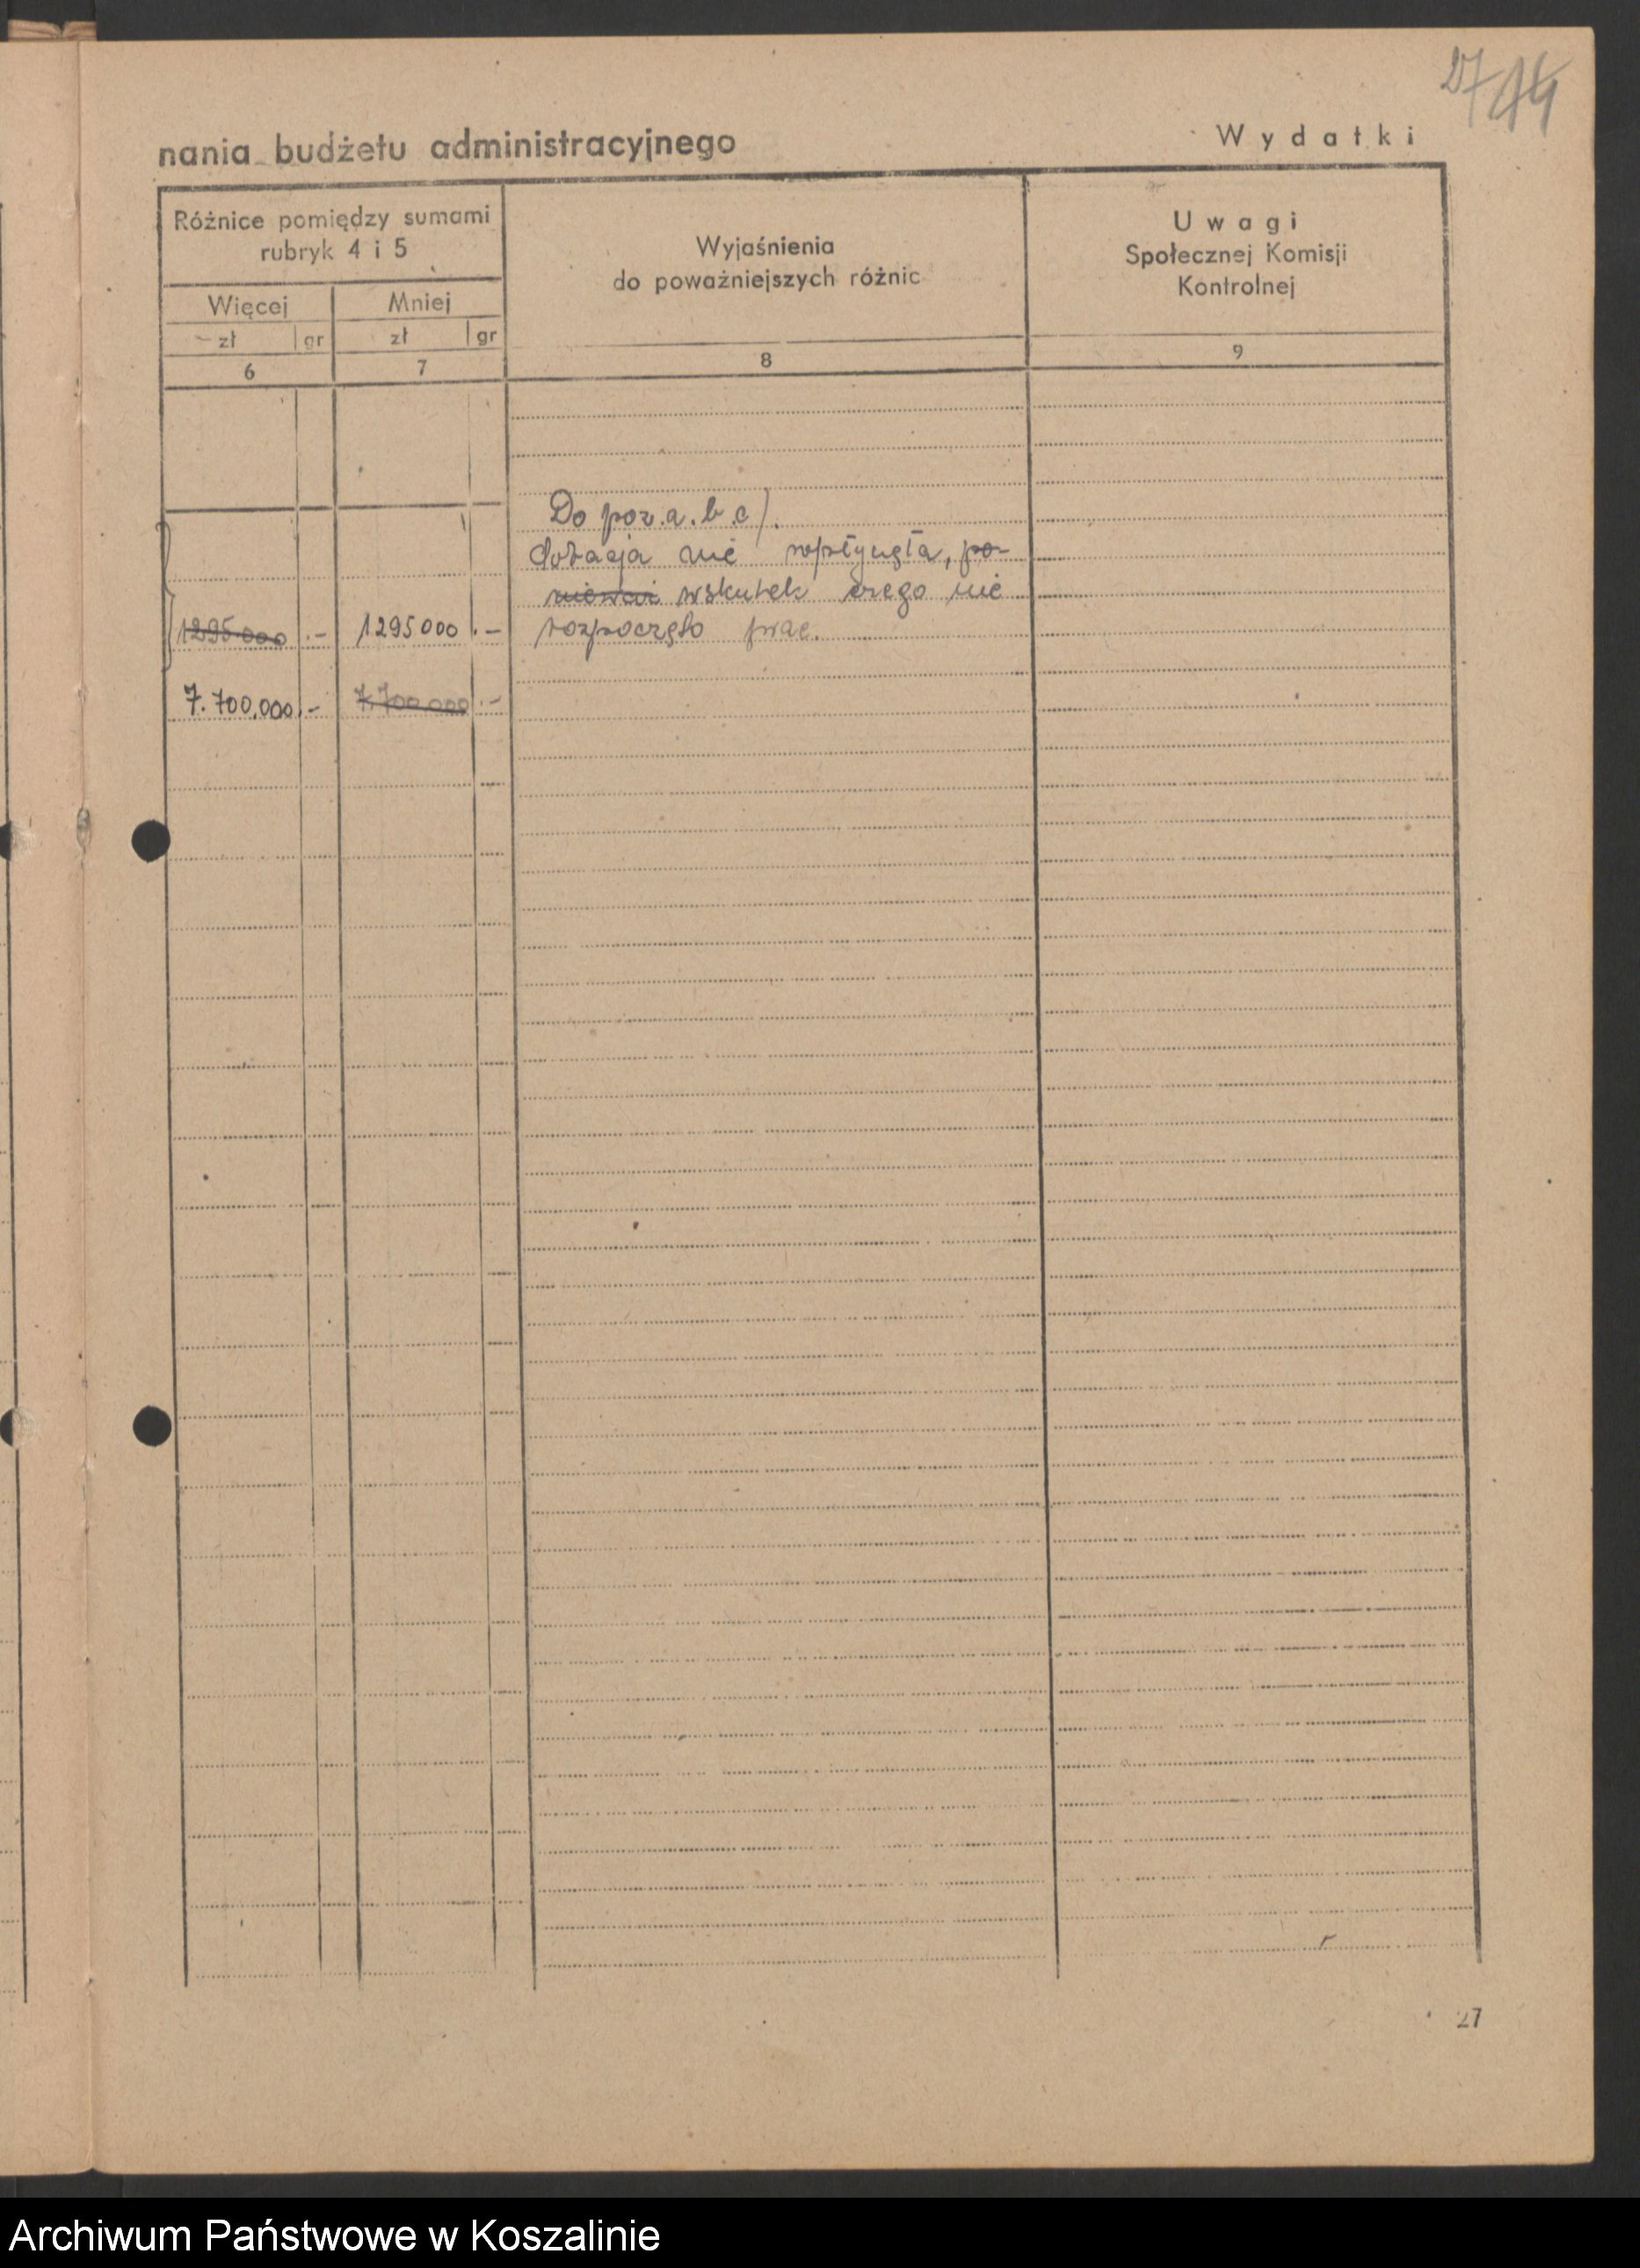 27 44
nania budżetu administracyjnego
Wydatki
Różnice pomiędzy sumami
rubryk 4 i 5
Więcej
Mniej
zł gr
zł gr
6
7
Wyjaśnienia
do poważniejszych różnic
8
Uwagi
Społecznej Komisji
Kontrolnej
9
Do poz. a. b. c).
dotacja nie wpłynęła, po-
nieważ wskutek czego nie
1295000 .- 1295000 .- rozpoczęto prac.
7.700.000 .- 7.700.000 .-
27
Archiwum Państwowe w Koszalinie